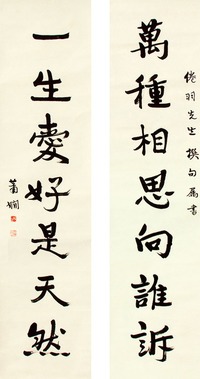 倦羽先生撰句屬書
萬種相思向誰訴
一生愛好是天然
蕭嫻